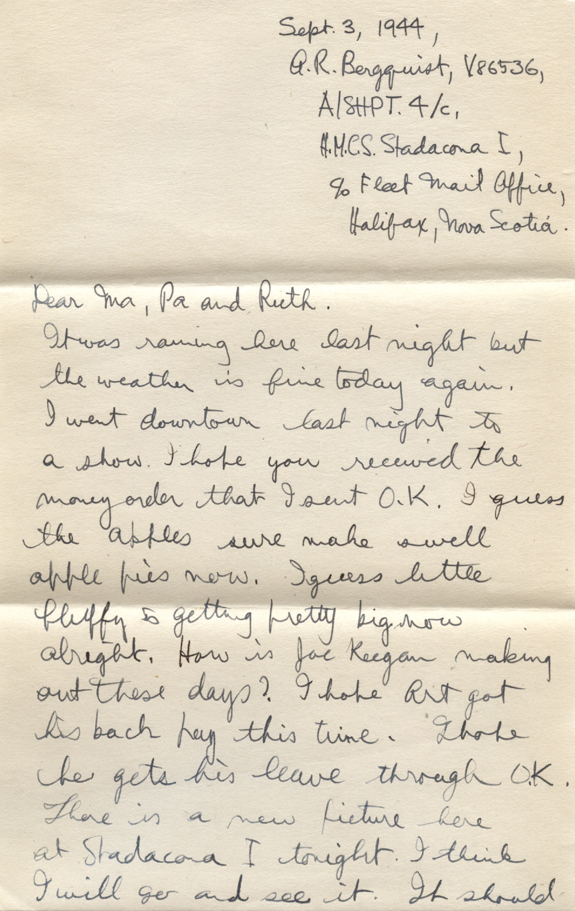 Sept. 3, 1944,
A.R. Bergquist, V86536,
A/SHPT. 4/c,
H.M.C.S. Stadacona I,
℅ Fleet Mail Office,
Halifax, Nova Scotia.
Dear Ma, Pa and Ruth.
It was raining here last night but
the weather is fine today again.
I went downtown last night to
a show. I hope you received the
money order that I sent O.K. I guess
the apples sure make swell
apple pies now. I guess little
fluffy is getting pretty big now
alright. How is Joe Keegan making
out these days? I hope Art got
his back pay this time. I hope
he gets his leave through O.K.
There is a new picture here
at Stadacona I tonight. I think
I will go and see it. It should